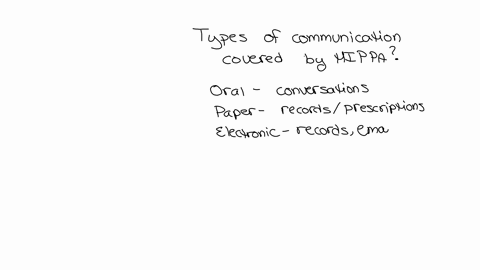 Types of communication
covered by HIPPA?
Oral - conversations
Paper- records/prescriptions
Electronic - records, ema